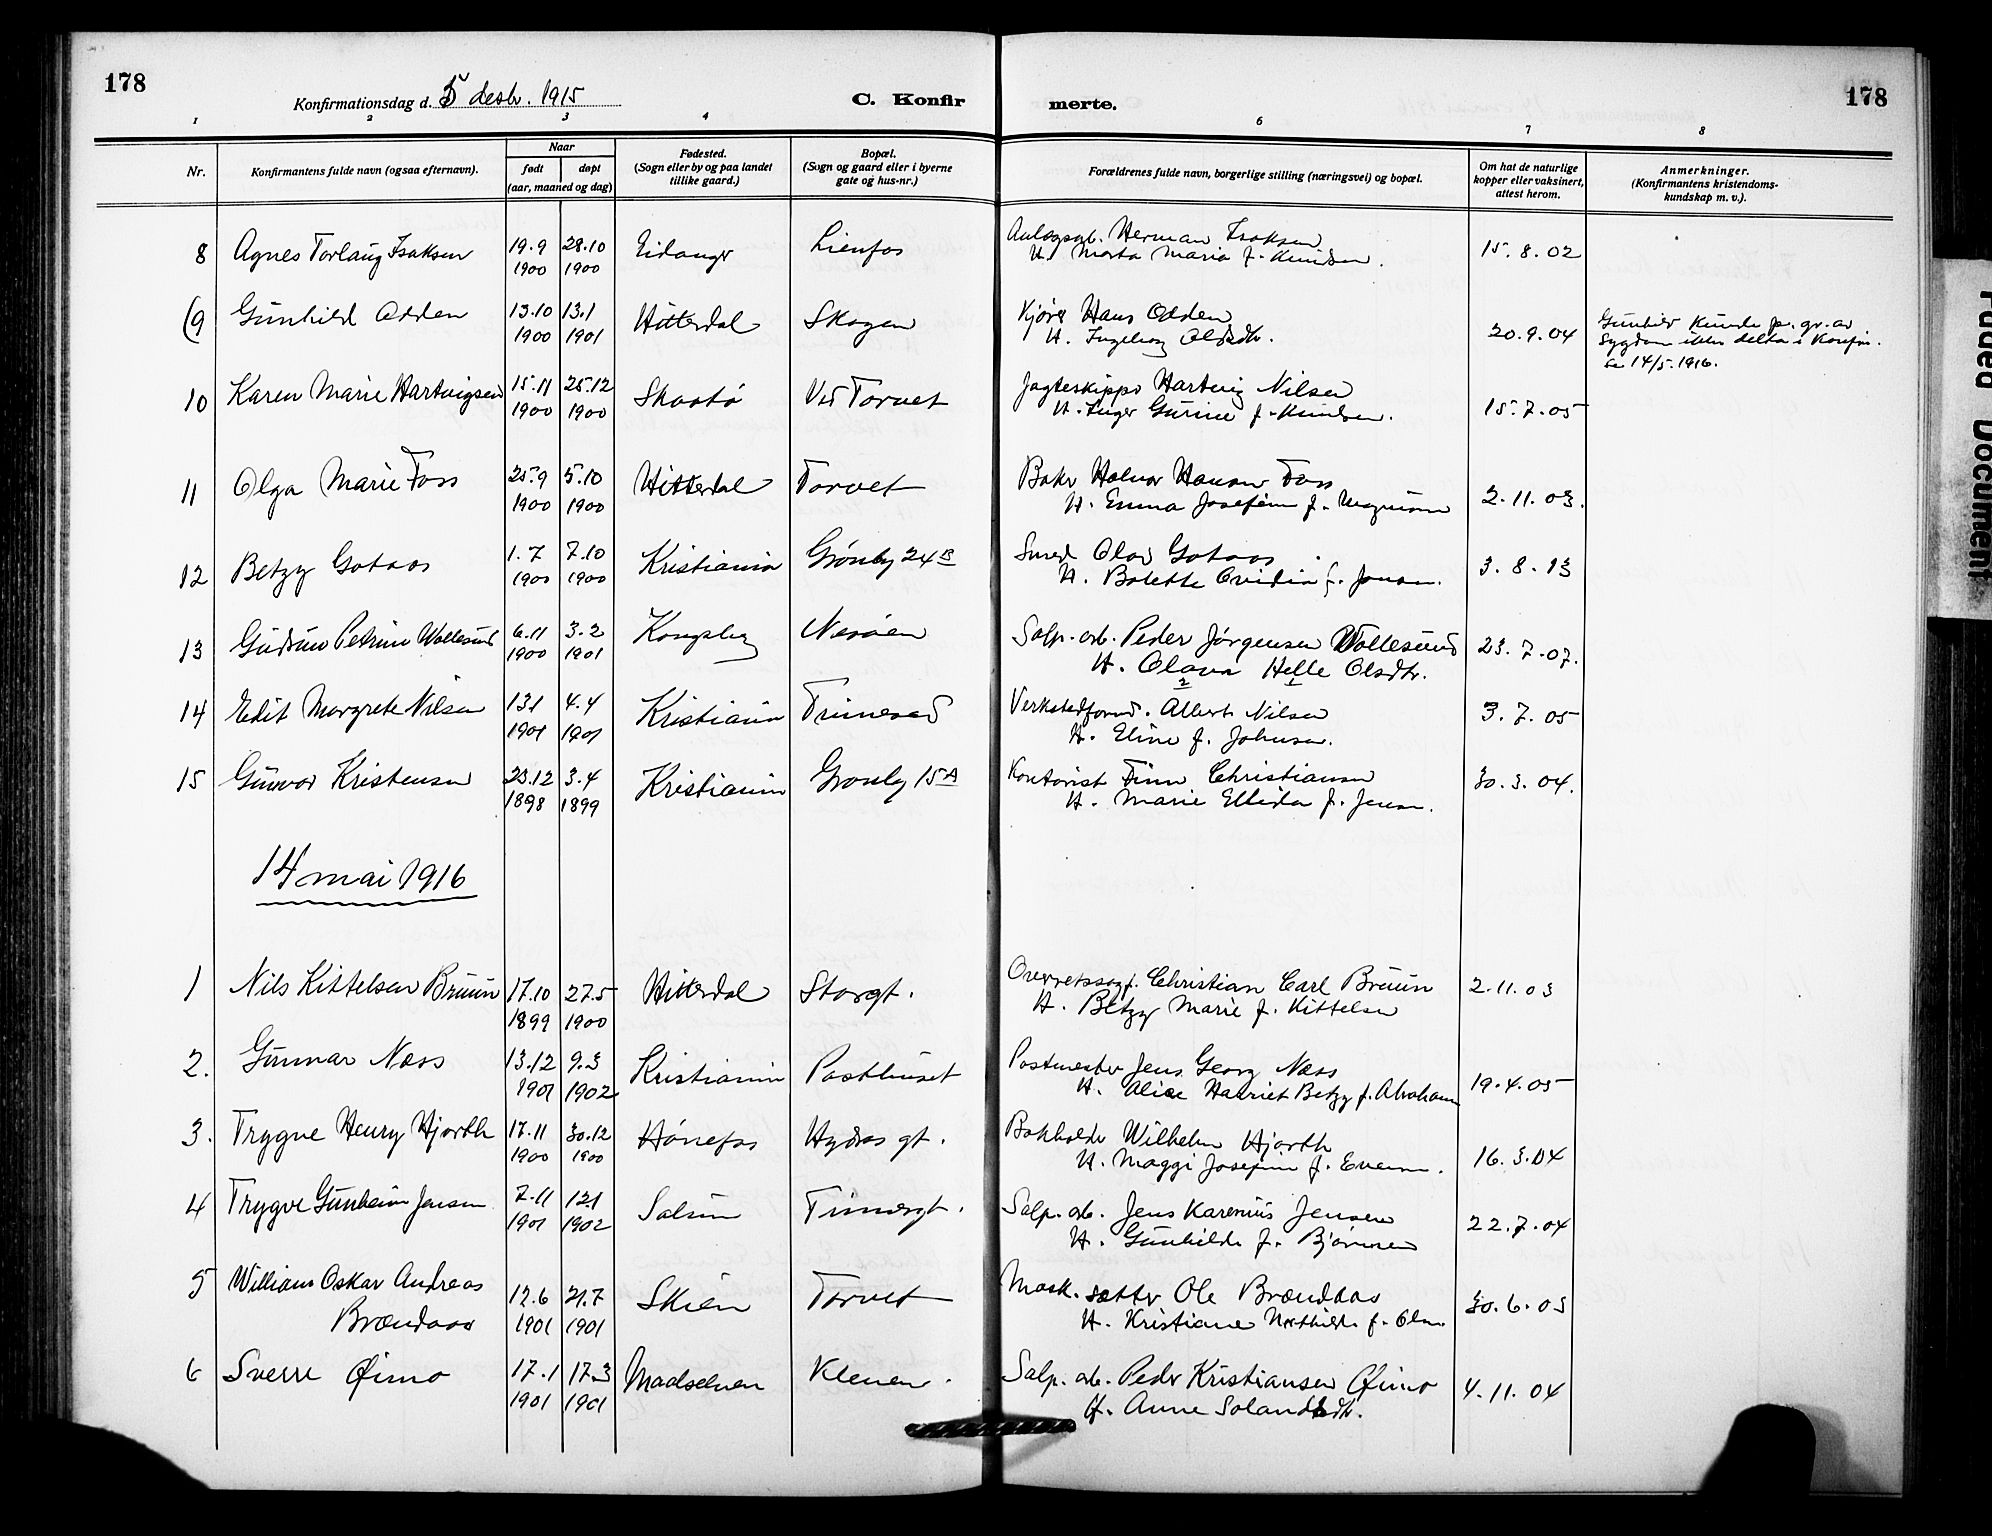 178
Konfirmationsdag d. 5 desbr. 1915
C. Konfirmerte.
178
1 2 3 4 5 6 7 8
Nr.
Konfirmantens fulde navn (ogsaa efternavn).
Naar
født
døpt
(aar, maaned og dag)
Fødested.
(Sogn eller by og paa landet
tillike gaard.)
Bopæl.
(Sogn og gaard eller i byerne
gate og hus-nr.)
Forældrenes fulde navn, borgerlige stilling (næringsvei) og bopæl.
Om hat de naturlige
kopper eller vaksinert,
attest herom.
Anmerkninger.
(Konfirmantens kristendoms-
kundskap m. v.).
8 Agnes Torlaug Isaksen 19.9 1900 28.10 1900 Eidanger Lienfos
Anlægsarb. Herman Isaksen
H. Marta Maria f. Knudsen. 15.8.02
(9 Gunhild Odden 13.10 1900 13.1 1901 Hitterdal Skogen
Kjører Hans Odden
H. Ingeborg Olsdtr. 20.9.04
Gunhild kunde p. gr. av
sygdom ikke delta i konfir.
Se 14/5. 1916.
10 Karen Marie Hartvigsen 15.11 1900 25.12 1900 Skaatø Ved Torvet
Jagteskipper Hartvig Nilsen
H. Inger Gurine f. Knudsen. 15.7.05
11 Olga Marie Foss 25.9 1900 5.10 1900 Hitterdal Torvet
Baker Halvor Hansen Foss
H. Emma Josefine f. Magnusen 2.11.03.
12 Betzy Gotaas 1.7 1900 7.10 1900 Kristiania Grønby 24B
Smed Olav Gotaas
H. Bolette Ovidia f. Jonsen. 3.8.13
13 Gudrun Petrine Wollesund 6.11 1900 3.2 1901 Kongsberg Nesøen
Salp. arb. Peder Jørgensen Wollesund
H. Olava Helle Olsdtr. 23.7.07.
2 1
14 Edit Margrete Nilsen 13.1 1901 4.4 1901 Kristiania Tinnesand
Verkstedform. Albert Nilsen
H. Eline f. Johnsen. 3.7.05
15 Gunvor Kristensen 23.12 1898 3.4 1899 Kristiania Grønby 15A
Kontorist Finn Christiansen
H. Marie Ellida f. Jensen. 30.3.04.
14 mai 1916
1 Nils Kittelsen Bruun 17.10 1899 27.5 1900 Hitterdal Storgt.
Overretssagf. Christian Carl Bruun
H. Betzy Marie f. Kittelsen 2.11.03
2. Gunnar Næss 13.12 1901 9.3 1902 Kristiania Posthuset
Postmester Jens Georg Næss
H. Alice Harriet Betzy f. Abrahamsen 19.4.05
3. Trygve Henry Hjorth 17.11 1900 30.12 1900 Hønefos Hydros gt.
Bokholder Wilhelm Hjorth
H. Maggi Josefine f. Evensen. 16.3.04
4 Trygve Gunheim Jensen 7.11 1901 12.1 1902 Solum Tinnesgt.
Salp. arb. Jens Karenius Jensen
H. Gunhilde f. Bjørnsen 22.7.04
5 William Oskar Andreas
Brændaas 12.6 1901 21.7 1901 Skien Torvet
Mask. sætter Ole Brændaas
H. Kristiane Mathilde f. Olsen 30.6.03
6 Sverre Øimo 17.1 1901 17.3 1901 Maalselven Kleven.
Salp. arb. Peder Kristiansen Øimo
H. Anne 4.11.04
Faded Document